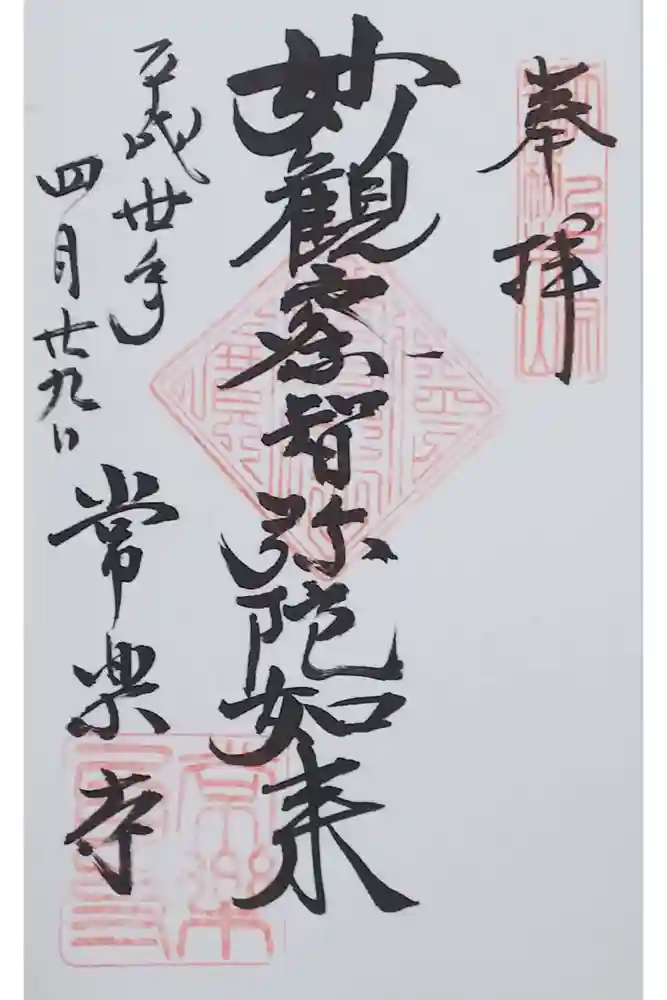 奉拝
妙觀察智弥陀如来
平成丗年
四月廿九日
常楽寺